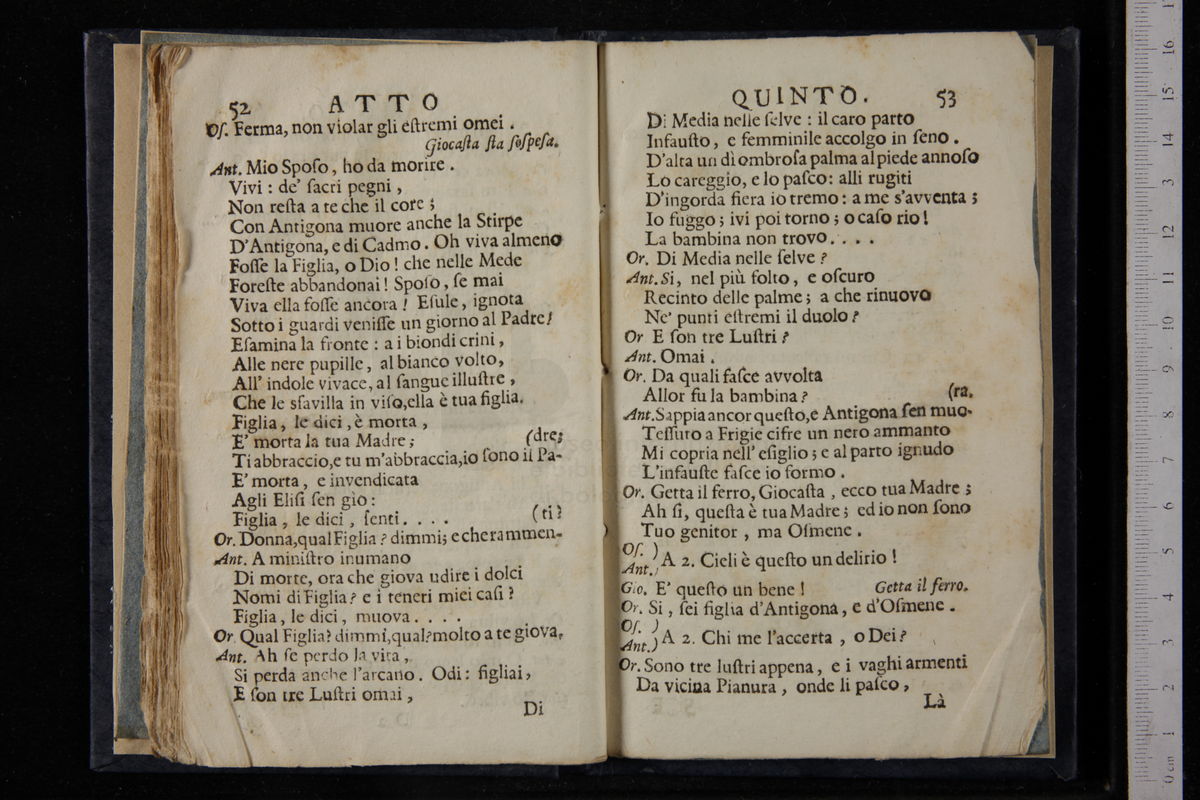 52 ATTO
Oſ. Ferma, non violar gli eſtremi omei.
Giocaſta ſta ſoſpeſa.
Ant. Mio Spoſo, ho da morire.
Vivi: de' ſacri pegni,
Non reſta a te che il core;
Con Antigona muore anche la Stirpe
D'Antigona, e di Cadmo. Oh viva almeno
Foſſe la Figlia, o Dio! che nelle Mede
Foreſte abbandonai! Spoſo, ſe mai
Viva ella foſſe ancora! Eſule, ignota
Sotto i guardi veniſſe un giorno al Padre!
Eſamina la fronte: a i biondi crini,
Alle nere pupille, al bianco volto,
All' indole vivace, al ſangue illuſtre,
Che le sfavilla in viſo, ella è tua figlia.
Figlia, le dici, è morta,
E' morta la tua Madre; (dre;
Ti abbraccio, e tu m'abbraccia, io ſono il Pa-
E' morta, e invendicata
Agli Eliſi ſen gìo:
Figlia, le dici, ſenti.... (ti?
Or. Donna, qual Figlia? dimmi; e che rammen-
Ant. A miniſtro inumano
Di morte, ora che giova udire i dolci
Nomi di Figlia? e i teneri miei caſi?
Figlia, le dici, muova....
Or. Qual Figlia? dimmi, qual? molto a te giova.
Ant. Ah ſe perdo la vita,
Si perda anche l'arcano. Odi: figliai,
E ſon tre Luſtri omai,
Di
QUINTO. 53
Di Media nelle ſelve: il caro parto
Infauſto, e femminile accolgo in ſeno.
D'alta un dì ombroſa palma al piede annoſo
Lo careggio, e lo paſco: alli rugiti
D'ingorda fiera io tremo: a me s'avventa;
Io fuggo; ivi poi torno; o caſo rio!
La bambina non trovo....
Or. Di Media nelle ſelve?
Ant. Si, nel più folto, e oſcuro
Recinto delle palme; a che rinuovo
Ne' punti eſtremi il duolo?
Or E ſon tre Luſtri?
Ant. Omai.
Or. Da quali faſce avvolta
Allor fu la bambina? (ra.
Ant. Sappia ancor queſto, e Antigona ſen muo-
Teſſuto a Frigie cifre un nero ammanto
Mi copria nell' eſiglio; e al parto ignudo
L'infauſte faſce io formo.
Or. Getta il ferro, Giocaſta, ecco tua Madre;
Ah ſi, queſta è tua Madre; ed io non ſono
Tuo genitor, ma Oſmene.
Oſ. )
Ant.) A 2. Cieli è queſto un delirio!
Gio. E' queſto un bene! Getta il ferro.
Or. Si, ſei figlia d'Antigona, e d'Oſmene.
Oſ. )
Ant.) A 2. Chi me l'accerta, o Dei?
Or. Sono tre luſtri appena, e i vaghi armenti
Da vicina Pianura, onde li paſco,
Là